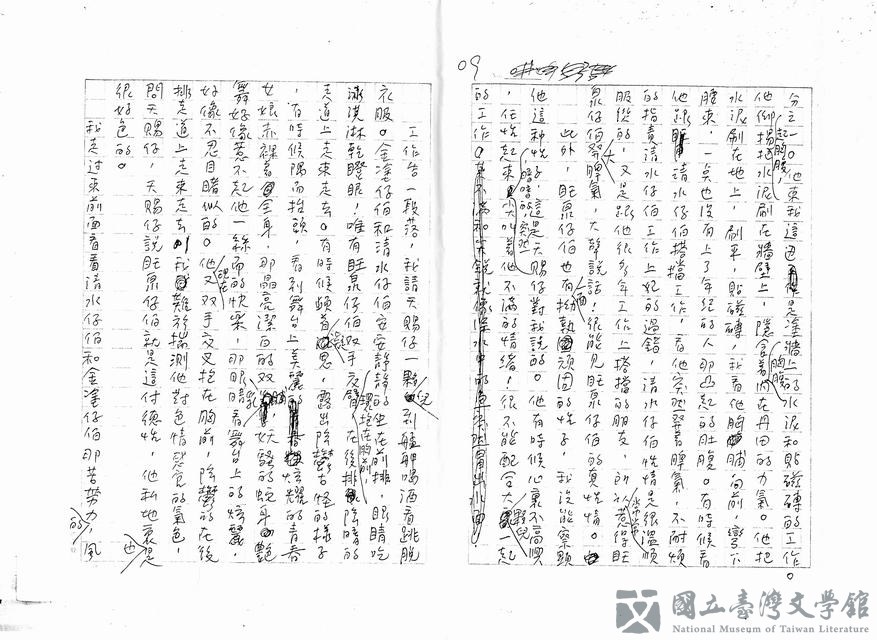 09
分之一。他東我這迅是塗牆上的水泥和貼磁磚的工作。
他仰揚起胸膛,把水泥刷在牆壁上,隱含著內在丹田的力氣。他把
水泥刷在地上,刷平,貼磁磚,我看他胸脯向前彎下
腰來,一點也沒有上了年紀的人那凸起的肚腹。有時候看
他跟清水仔伯搭擋工作,看他突然發著脾氣,不耐煩
的指責清水仔伯工作上犯的過錯,清水仔伯性情是很溫順
服從的,又是跟他很多年工作上搭擋的朋友,所以惹得旺
泉仔伯發脾氣,大聲說話!很能見旺泉仔伯的真性情。
此外,旺泉仔伯也有拗執頑固的性子,我沒能察顯
他這種性子,這是天賜仔對我說的。他有時候心裏不高興
,任性起來,嘟嘟的,突然尖叫著他不滿的情緒!很不能配合大夥兒一起
的工作。
工作告一段落,我請天賜仔一夥兒到艋舺喝酒看跳脫
衣服。金塗仔伯和清水仔伯安安靜靜的坐在前排,眼睛吃
冰淇淋乾瞪眼!唯有旺泉仔伯双手交臂抱在胸前在後排陰暗的
走道上走來走去。有時候頗著思,露出陰鬱古怪的樣子
,有時候隅而抬頭,看到舞台上美麗的炫耀的青春
女娘赤裸著全身,那晶亮潔白的双胸脯,妖騷的蛇身艷
舞好像惹不起他一絲而的快樂,那眼睛看舞台上的炫麗,
好像不忍目睹似的。他現在又双手交叉抱在胸前,陰鬱的在後
排走道上走來走去,我難於揣測他對色情慾念的氣色,
問天賜仔,天賜仔說旺泉仔伯就是這付德性,他私地裏是也
很好色的。
我走過來前面看看清水仔伯和金塗仔伯那苦勞力的,風
國立臺灣文學館
National Museum of Taiwan Literature